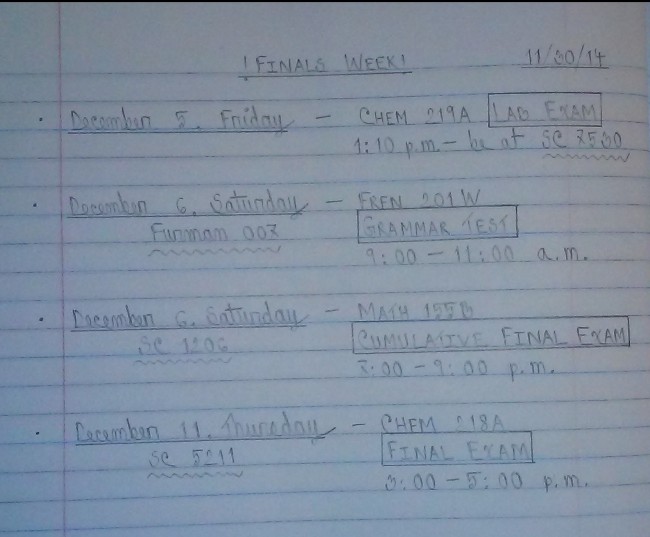 ! FINALS WEEK! 11/30/14
• December 5, Friday – CHEM 219A LAB EXAM
1:10 p.m. – be at SC
• December 6, Saturday – FREN 201W
Furman GRAMMAR TEST
9:00 – 11:00 a.m.
• December 6, Saturday – MATH 155B
SC 1206 CUMULATIVE FINAL EXAM
9:00 p.m.
• December 11, Thursday – CHEM 218A
SC 5211 FINAL EXAM
3:00 – 5:00 p.m.